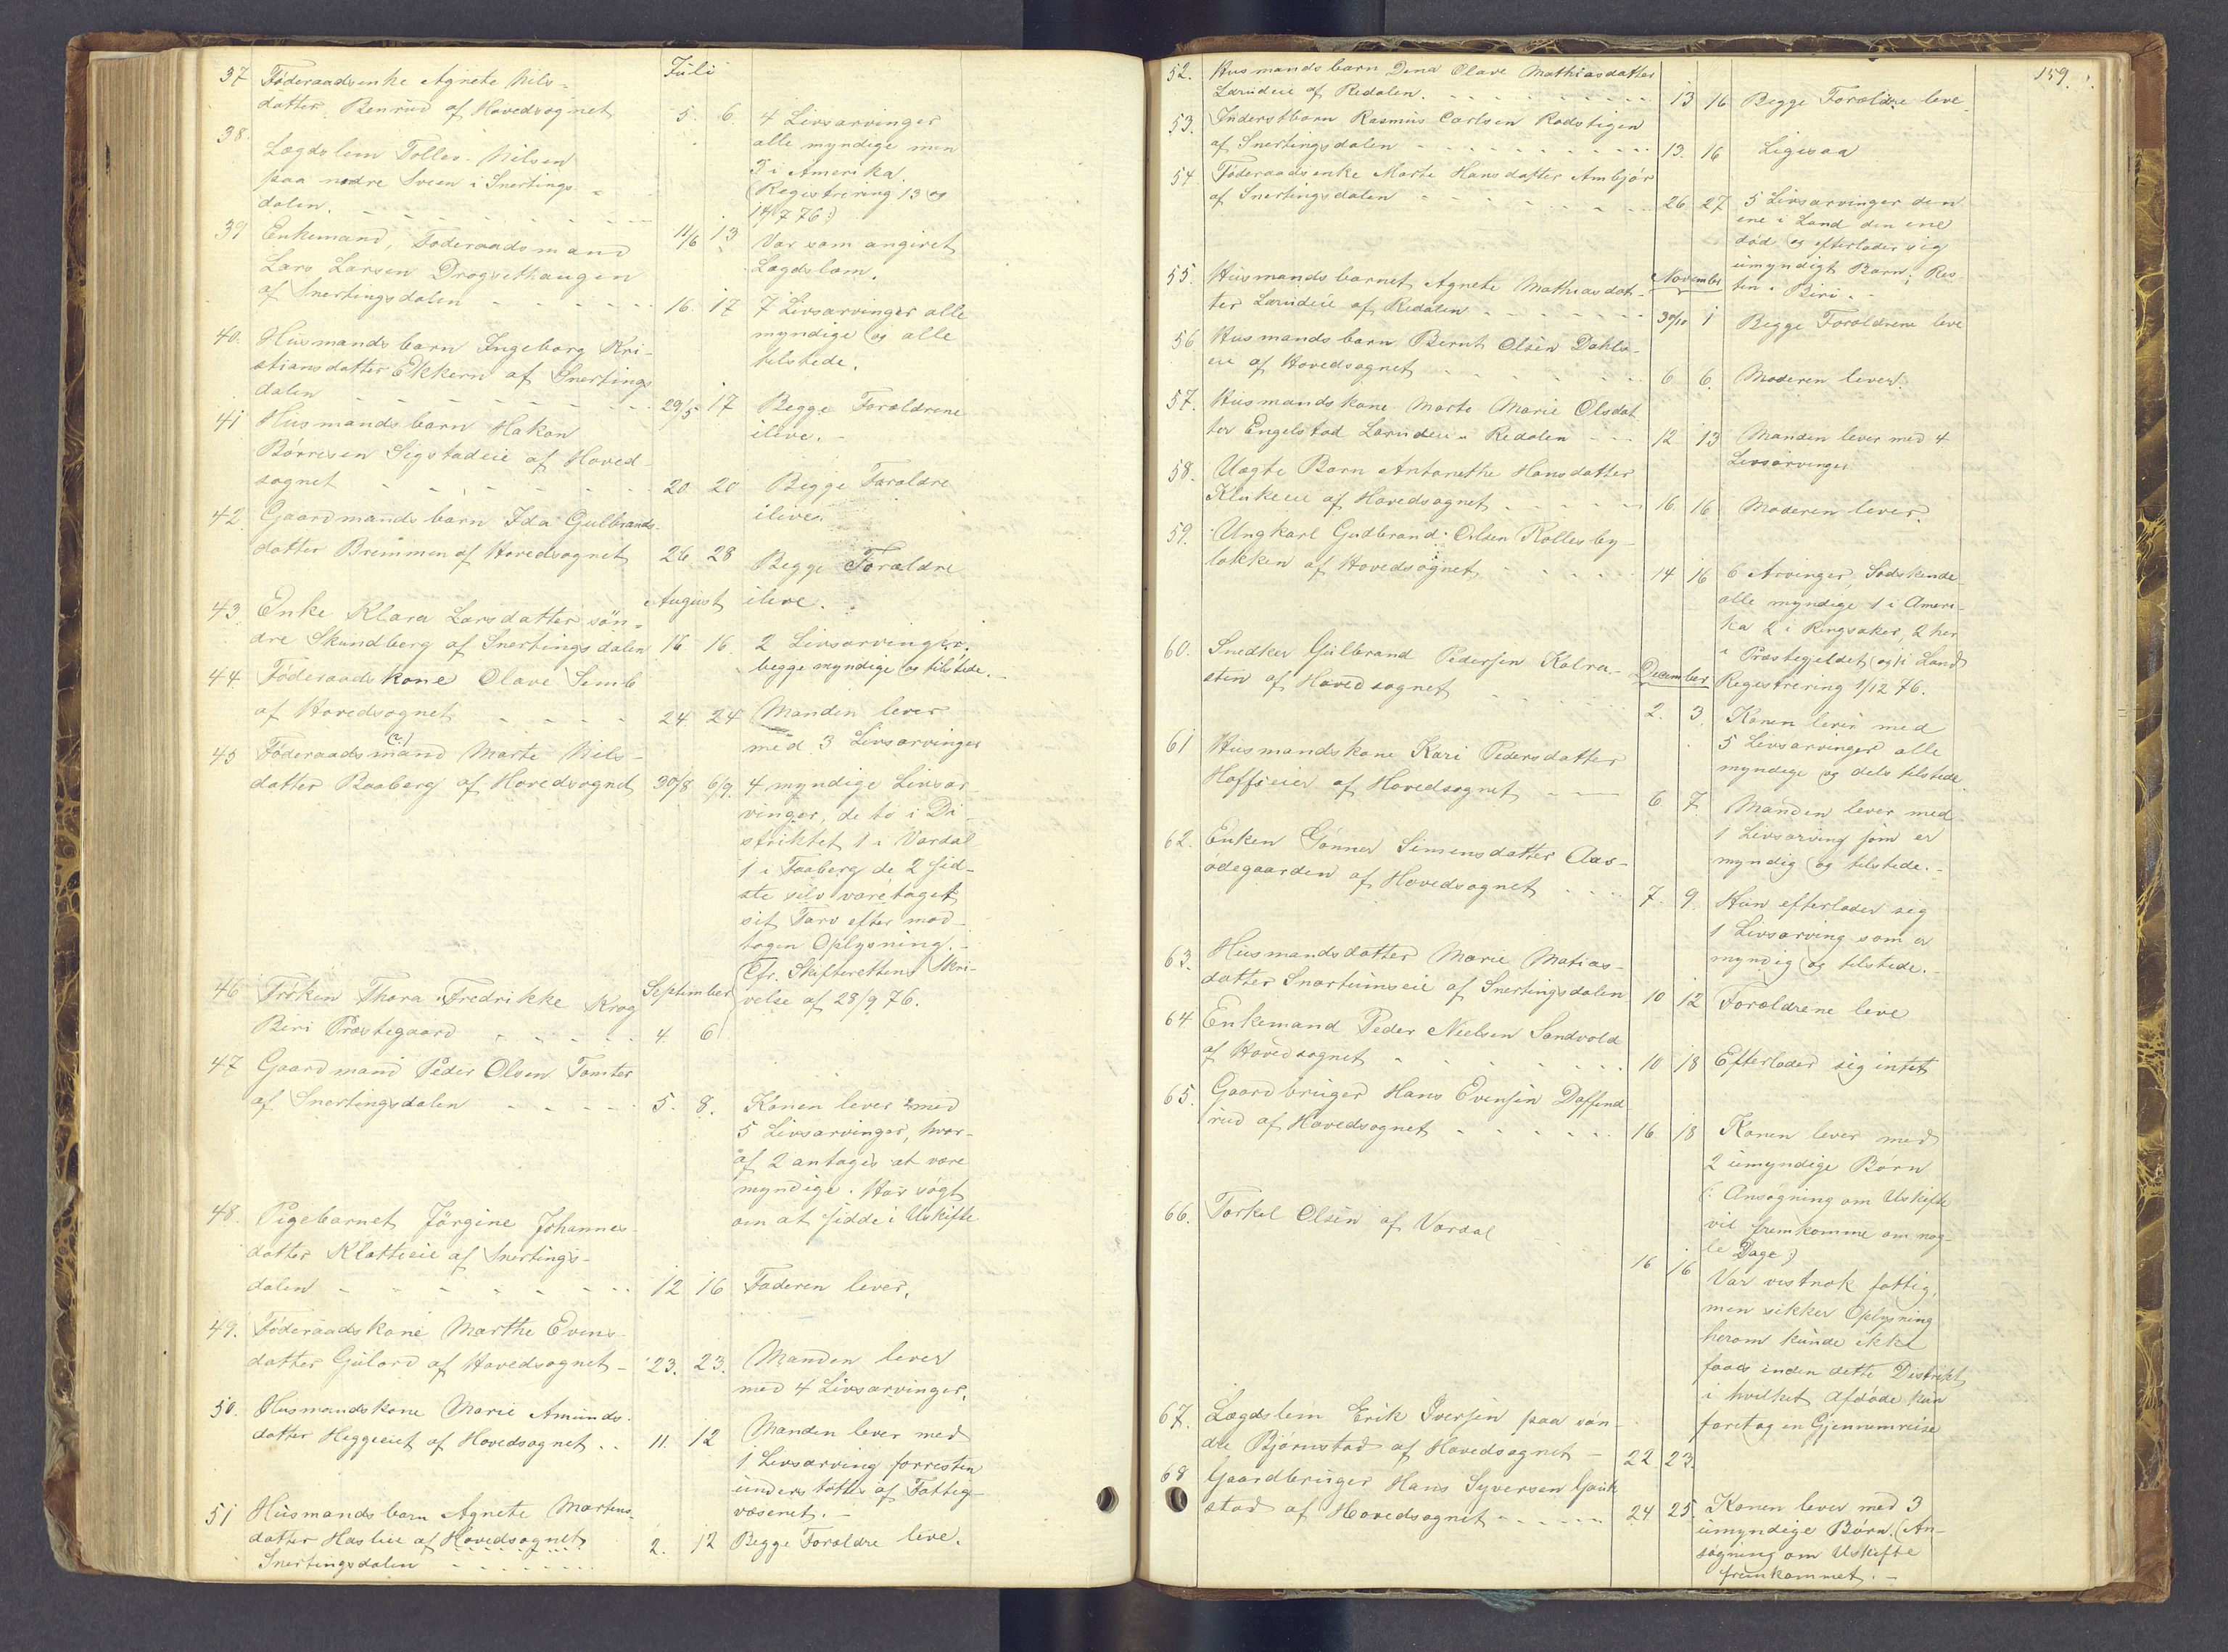 Juli
37 Föderaadsenke Agnete Nils-
datter Benrud af Hovedsognet 5. 6. 4 Livsarvinger
alle myndige men
3 i Amerika.
(Registrering 13 og
14/7 76:)
38. Lægdslem Tolles Nilsen
paa nedre Sveen i Snertings-
dalen. 11/6 13 Var som angivet
Lægdslem.
39 Enkemand, Föderaadsmand
Lars Larsen Drogsethaugen
af Snertingsdalen 16. 17 7 Livsarvinger alle
myndige og alle
tilstede.
40. Husmandsbarn Ingeborg Kri-
stiansdatter Ekkern af Snertings
dalen 29/5 17 Begge Forældrene
ilive.
41 Husmandsbarn Hakon
Börresen Sigstadeie af Hoved-
sognet 20 20 Begge Forældre
ilive.
42 Gaardmandsbarn Ida Gulbrands-
datter Bremmen af Hovedsognet 26. 28 Begge Forældre
ilive.
August
43. Enke Klara Larsdatter sön-
dre Skundberg af Snertingsdalen 16 16. 2 Livsarvinger.
begge myndige og tilstede.
44 Föderaadskone Olave Semb
af Hovedsognet 24 24 Manden lever
med 3 Livsarvinger
45 Föderaadsmand (a:) Marte Nils-
datter Baaberg af Hovedsognet 30/8 6/9. 4 myndige Livsar-
vinger, de to i Di-
striktet 1 i Vardal
1 i Faaberg de 2 sid-
ste selv varetaget
sit Tarv efter mod-
tagen Oplysning.
Cfr. Skifterettens Skri-
velse af 28/9 76.
September
46 Fröken Thora Fredrikke Krog
Biri Præstegaard 4. 6
47 Gaardmand Peder Olsen Tomter
af Snertingsdalen 5. 8. Konen lever med
5 Livsarvinger, hvor-
af 2 antages at være
myndige. Har sögt
om at sidde i Uskifte
48. Pigebarnet Jörgine Johannes-
datter Klætteie af Snertings-
dalen 12 16 Faderen lever.
49. Föderaadskone Marthe Evens-
datter Gulord af Hovedsognet 23. 23. Manden lever
med 4 Livsarvinger.
50. Husmandskone Marie Amunds-
datter Heggeeiet af Hovedsognet 11. 12 Manden lever med
1 Livsarving forresten
understöttes af Fattig-
væsenet.
51 Husmandsbarn Agnete Martens-
datter Haslieie af Hovedsognet 2. 12 Begge Forældre leve.
Snertingsdalen
159.
52. Husmandsbarn Dina Olave Mathiasdatter
Larudeie af Redalen. 13 16 Begge Forældre leve
53. Inderstbarn Rasmus Carlsen Rodstigen
af Snertingsdalen 13. 16 Ligesaa
54. Föderaadsenke Marte Hansdatter Ambjör
af Snertingsdalen 26 27 5 Livsarvinger den
ene i Land den ene
död og efterlader sig
umyndigt Barn; Res-
ten i Biri.
November
55. Husmandsbarnet Agnete Mathiasdat-
ter Larudeie af Redalen 30/10 1 Begge Forældrene leve
56 Husmandsbarn Bernt Olsen Dahls-
eie af Hovedsognet 6. 6. Moderen lever.
57. Husmandskone Marte Marie Olsdat
ter Engelstad Larudeie Redalen 12 13 Manden lever med 4
Livsarvinger
58. Uægte Barn Antonethe Hansdatter
Klukeie af Hovedsognet 16. 16 Moderen lever.
59. Ungkarl Gudbrand Olsen Kollesby-
løkken af Hovedsognet 14 16 6 Arvinger, Södskende
alle myndige 1 i Ameri-
ka 2 i Ringsaker, 2 her
i Præstegjeldet og 1 i Land
Registrering 1/12 76.
December
60. Snedker Gulbrand Pedersen Kalra-
sten af Hovedsognet 2. 3. Konen lever med
5 Livsarvinger alle
myndige og dels tilstede.
61 Husmandskone Kari Pedersdatter
Hoffseier af Hovedsognet 6 7. Manden lever med
1 Livsarving som er
myndig og tilstede.
62. Enken Gönner Simensdatter Aas-
ödegaarden af Hovedsognet 7. 9. Hun efterlader sig
1 Livsarving som er
myndig og tilstede.
63. Husmandsdatter Marie Matias-
datter Snartumseie af Snertingsdalen 10 12 Forældrene leve
64 Enkemand Peder Nielsen Sandvold
af Hovedsognet 10 18 Efterlader sig intet
65. Gaardbruger Hans Evensen Daffind
rud af Hovedsognet 16. 18 Konen lever med
2 umyndige Börn
(: Ansögning om Uskifte
vil fremkomme om nog-
le Dage:)
66. Torkel Olsen af Vardal 16 16 Var vistnok fattig,
men sikker Oplysning
herom kunde ikke
faaes inden dette Distrikt
i hvilket Afdöde kun
foretog en Gjennemreise
67. Lægdslem Erik Iversen paa sön-
dre Bjørnstad af Hovedsognet 22 23.
68 Gaardbruger Hans Syversen Gauk
stad af Hovedsognet 24 25. Konen lever med 3
umyndige Börn. (An-
sögning om Uskifte
fremkommet.